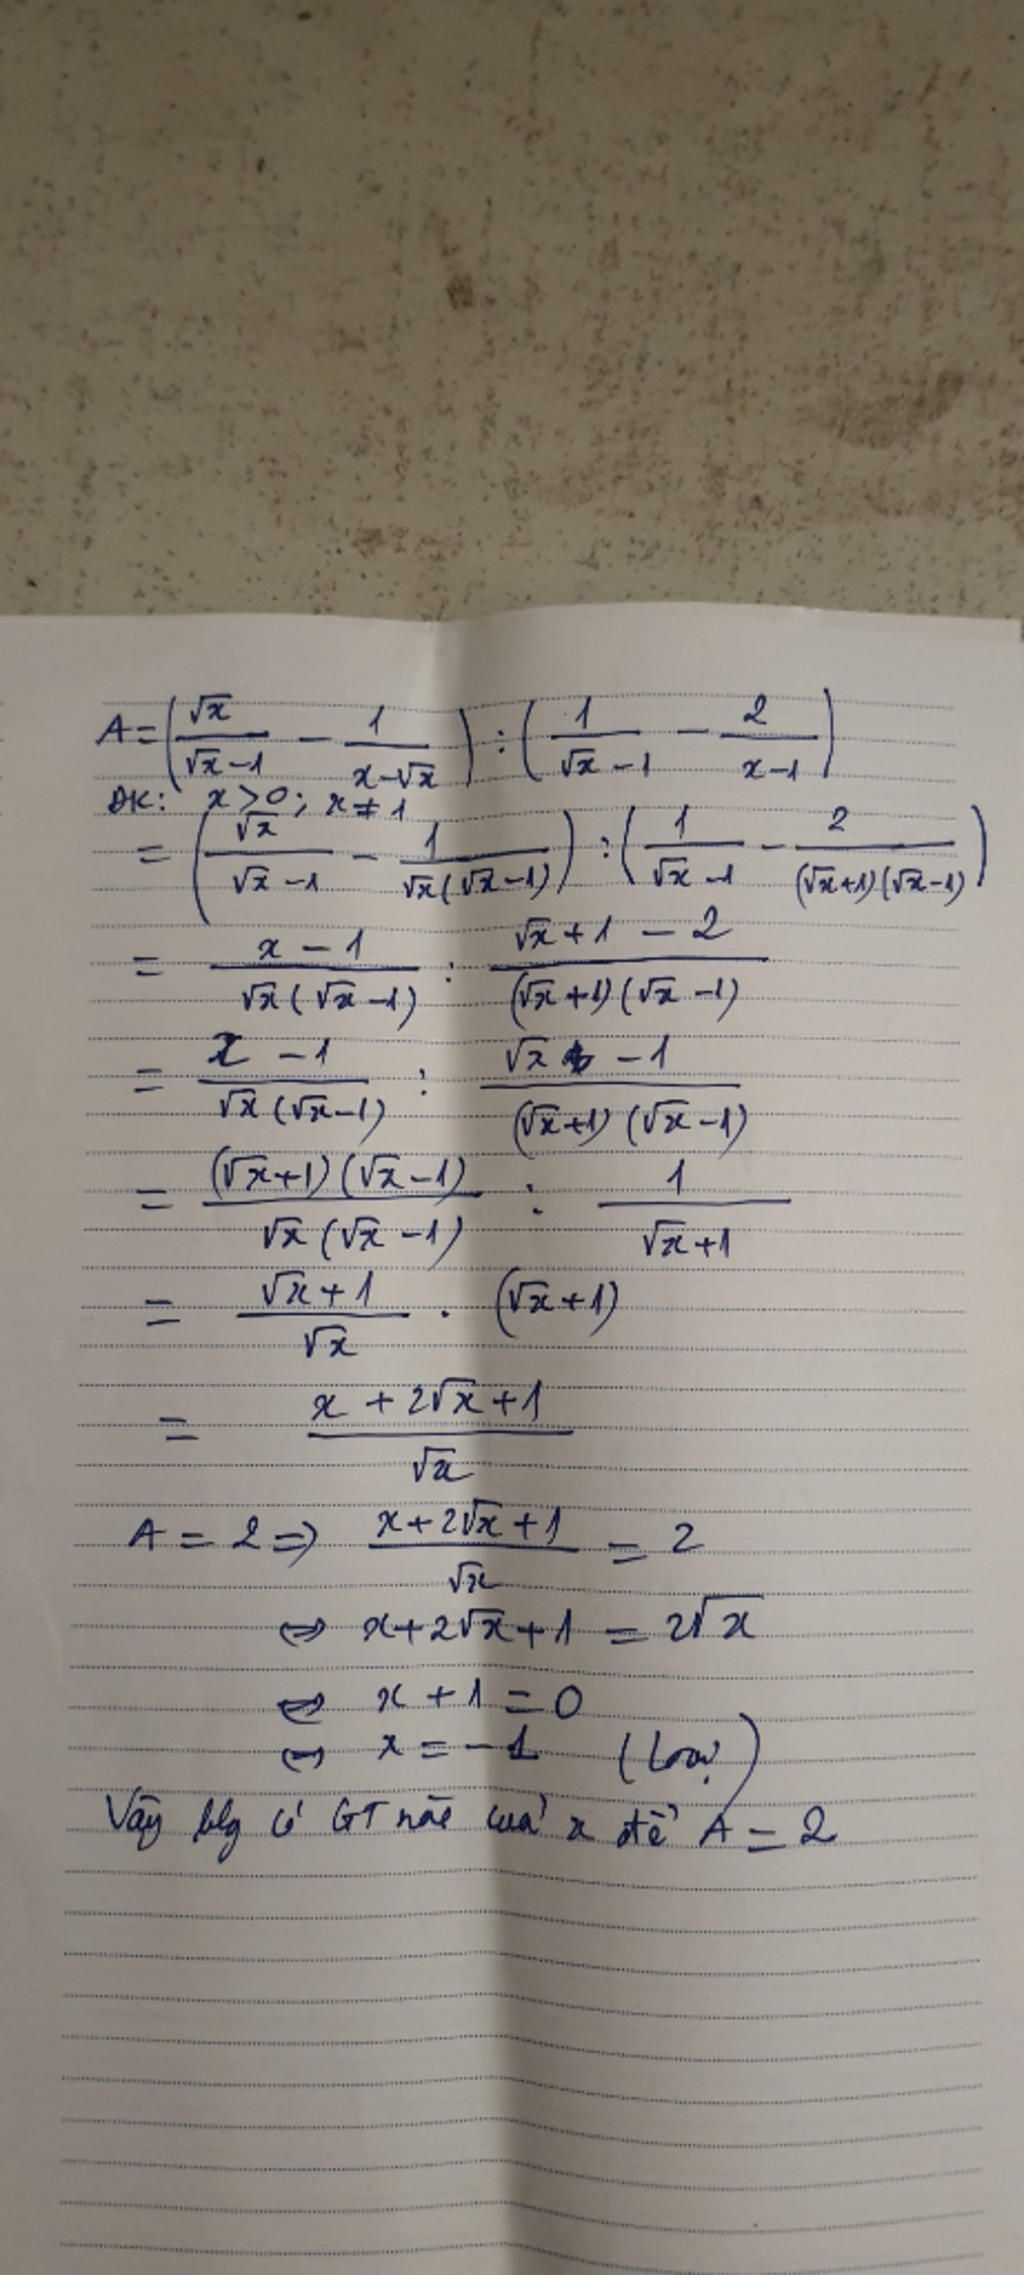 A = (√x/(√x-1) - 1/(x-√x)) : (1/(√x-1) - 2/(x-1))
ĐK: x > 0; x ≠ 1
= (√x/(√x-1) - 1/(√x(√x-1))) : (1/(√x-1) - 2/((√x+1)(√x-1)))
= (x-1)/(√x(√x-1)) : (√x+1-2)/((√x+1)(√x-1))
= (x-1)/(√x(√x-1)) : (√x-1)/((√x+1)(√x-1))
= ((√x+1)(√x-1))/(√x(√x-1)) : 1/(√x+1)
= (√x+1)/√x . (√x+1)
= (x+2√x+1)/√x
A = 2 => (x+2√x+1)/√x = 2
⇔ x+2√x+1 = 2√x
⇔ x+1 = 0
⇔ x = -1 (Loại)
Vậy có GT nào của x để A = 2